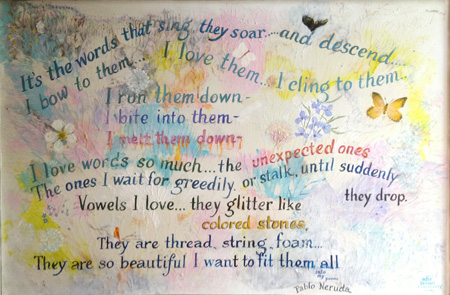 It's the words that sing, they soar....and descend....
I bow to them.... I love them... I cling to them...
I run them down-
I bite into them-
I melt them down-
I love words so much....the unexpected ones
The ones I wait for greedily, or stalk, until suddenly
they drop.
Vowels I love... they glitter like
colored stones,
They are thread, string, foam...
They are so beautiful I want to fit them all
into
my
poems
Pablo Neruda